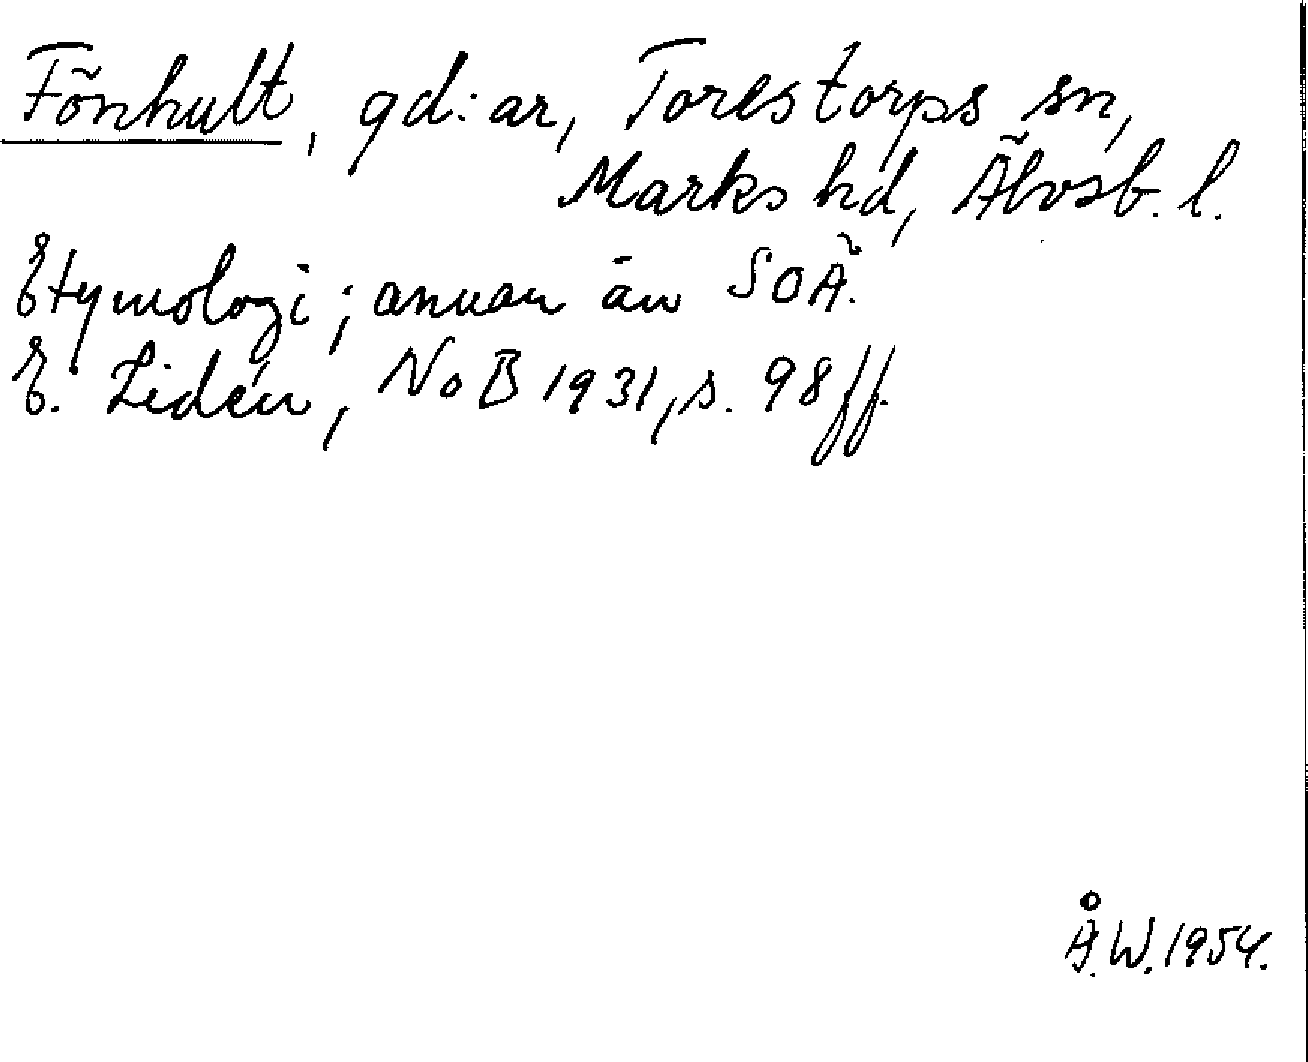 Fönhult, gd:ar, Torestorps sn,
Marks hd, Älvsb. l.
Etymologi; annan än SOÄ.
E. Lidén, NoB 1931, s. 98 ff.
Å.W. 1954.